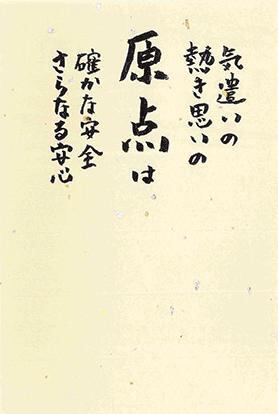 気遣いの
熱き思いの
原点は
確かな安全
さらなる安心